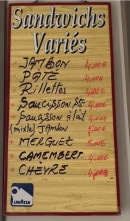 Sandwichs
Variés
JAMBON 4,00€
PATÉ 4,00€
Rillettes 4,00€
Saucisson sec 4,00€
Saucisson à l'ail 4,00€
(mixte) Jambon
MERGUEZ 5,00€
CAMEMBERT 4,00€
CHEVRE